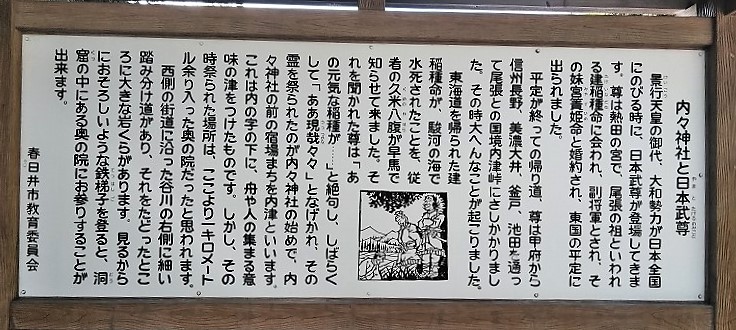 内々神社と日本武尊
景行天皇の御代、大和勢力が日本全国
にのびる時に、日本武尊が登場してきま
す。尊は熱田の宮で、尾張の祖といわれ
る建稲種命に会われ、副将軍とされ、そ
の妹宮簀姫命と婚約され、東国の平定に
出られました。
平定が終っての帰り道、尊は甲府から
信州長野、美濃大井、釜戸、池田を通っ
て尾張との国境内津峠にさしかかりまし
た。その時大へんなことが起こりました。
東海道を帰られた建
稲種命が、駿河の海で
水死されたことを、従
者の久米八腹が早馬で
知らせて来ました。そ
れを聞かれた尊は「あ
の元気な稲種が……と絶句し、しばらく
して「ああ現哉々々」となげかれ、その
霊を祭られたのが内々神社の始めで、内
々神社の前の宿場まちを内津といいます。
これは内の字の下に、舟や人の集まる意
味の津をつけたものです。しかし、その
時祭られた場所は、ここより一キロメート
ル余り入った奥の院だったと思われます。
西側の街道に沿った谷川の右側に細い
踏み分け道があり、それをたどったとこ
ろに大きな岩くらがあります。見るから
におそろしいような鉄梯子を登ると、洞
窟の中にある奥の院にお参りすることが
出来ます。
春日井市教育委員会